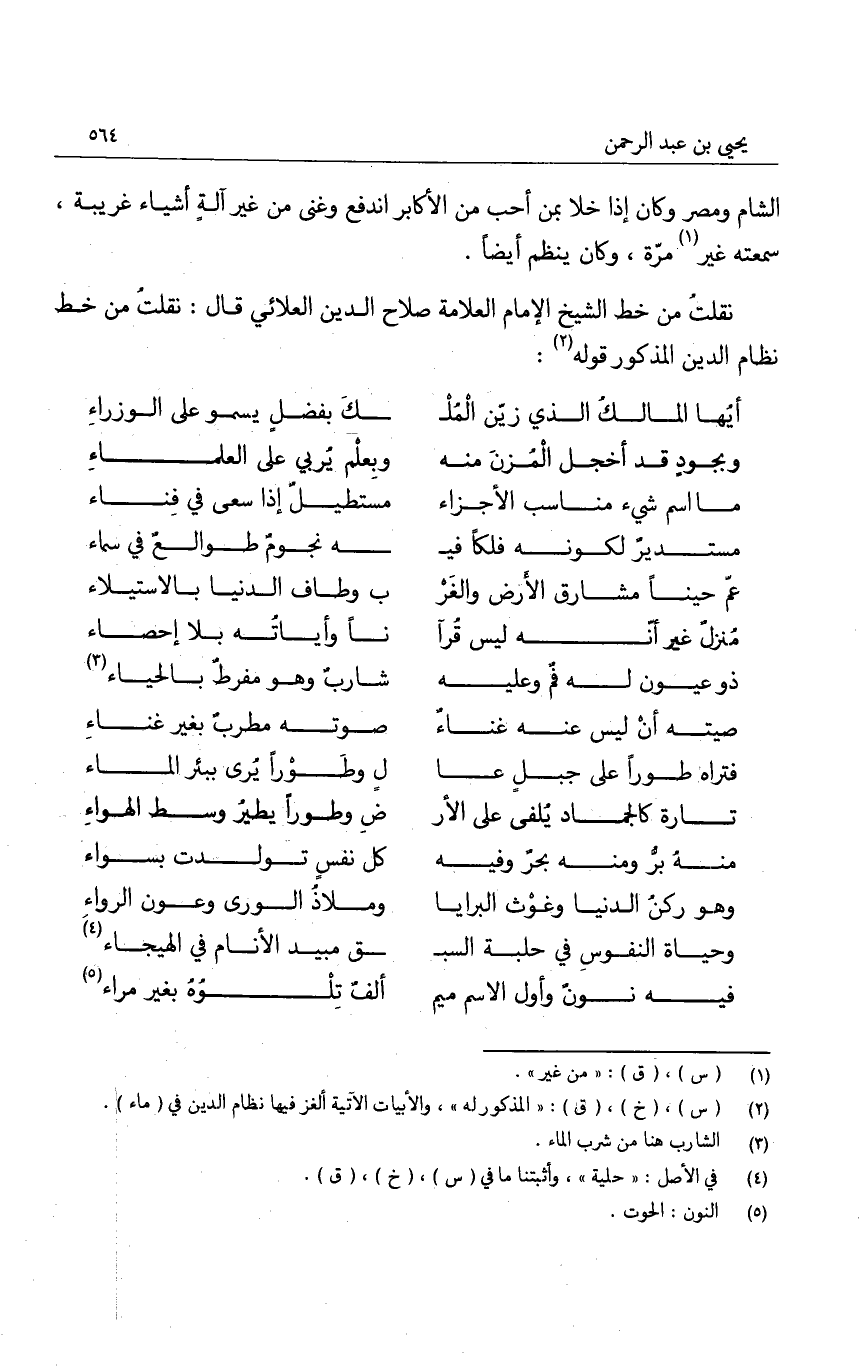 يحيى بن عبد الرحمن ٥٦٤
الشام ومصر وكان إذا خلا بمن أحب من الأكابر اندفع وغنى من غير آلةٍ أشياء غريبة ،
سمعته غير(١) مرّة ، وكان ينظم أيضاً .
نقلتُ من خط الشيخ الإمام العلامة صلاح الدين العلائي قال : نقلتُ من خط
نظام الدين المذكور قوله(٢) :
أيُها المالكُ الذي زيّن الْمُلْـ ـكَ بفضلٍ يسمو على الوزراءِ
وبجودٍ قد أخجل الْمُزنَ منه وبِعلْم يُربي على العلماءِ
ما اسم شيء مناسب الأجزاء مستطيلٌ إذا سعى في فِناء
مستديرٌ لكونه فلكاً فيـ ـه نجومٌ طوالعٌ في سماء
عمّ حيناً مشارق الأرض والغَرْ ب وطاف الدنيا بالاستيلاء
مُنزلٌ غير أنّه ليس قُرآ ناً وأياتُه بلا إحصاء
ذو عيون له فمٌ وعليه شاربٌ وهو مفرطٌ بالحياء(٣)
صيته أنْ ليس عنه غناءٌ صوته مطربٌ بغير غناءِ
فتراه طوراً على جبلٍ عا لٍ وطَوْراً يُرى ببئر الماء
تارة كالجماد يُلفى على الأر ضِ وطوراً يطيرُ وسط الهواءِ
منهُ برٌّ ومنه بحرٌ وفيه كل نفسٍ تولدت بسواء
وهو ركنُ الدنيا وغوْث البرايا وملاذُ الورى وعون الرواءِ
وحياة النفوسِ في حلبة السبـ ـق مبيد الأنام في الهيجاء(٤)
فيه نونٌ وأول الاسم ميم ألفٌ تِلْوُهُ بغير مراء(٥)
(١) ( س ) ، ( ق ) : « من غير » .
(٢) ( س ) ، ( خ ) ، ( ق ) : « المذكور له » ، والأبيات الآتية ألغز فيها نظام الدين في ( ماء ) .
(٣) الشارب هنا من شرب الماء .
(٤) في الأصل : « حلية » ، وأثبتنا ما في ( س ) ، ( خ ) ، ( ق ) .
(٥) النون : الحوت .